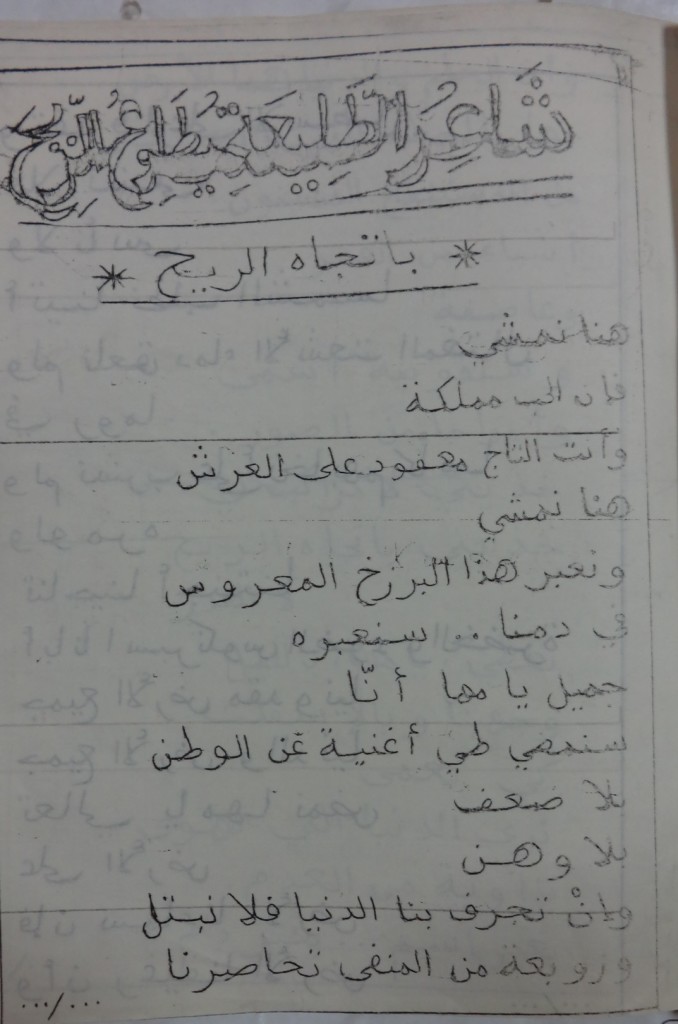 شَاعِرُ الطَّلِيعَةِ
* باتجاه الريح *
هنا نمشي
فإن الحب مملكة
وأنت التاج معقود على العرش
هنا نمشي
ونعبر هذا البرزخ المغروس
في دمنا .. سنعبره
جميل يا مها أنّا
سنمضي طي أغنية عن الوطن
بلا ضعف
بلا وهن
وإنْ تجرف بنا الدنيا فلا نبتل
وزوبعة من المنفى تحاصرنا
.../...